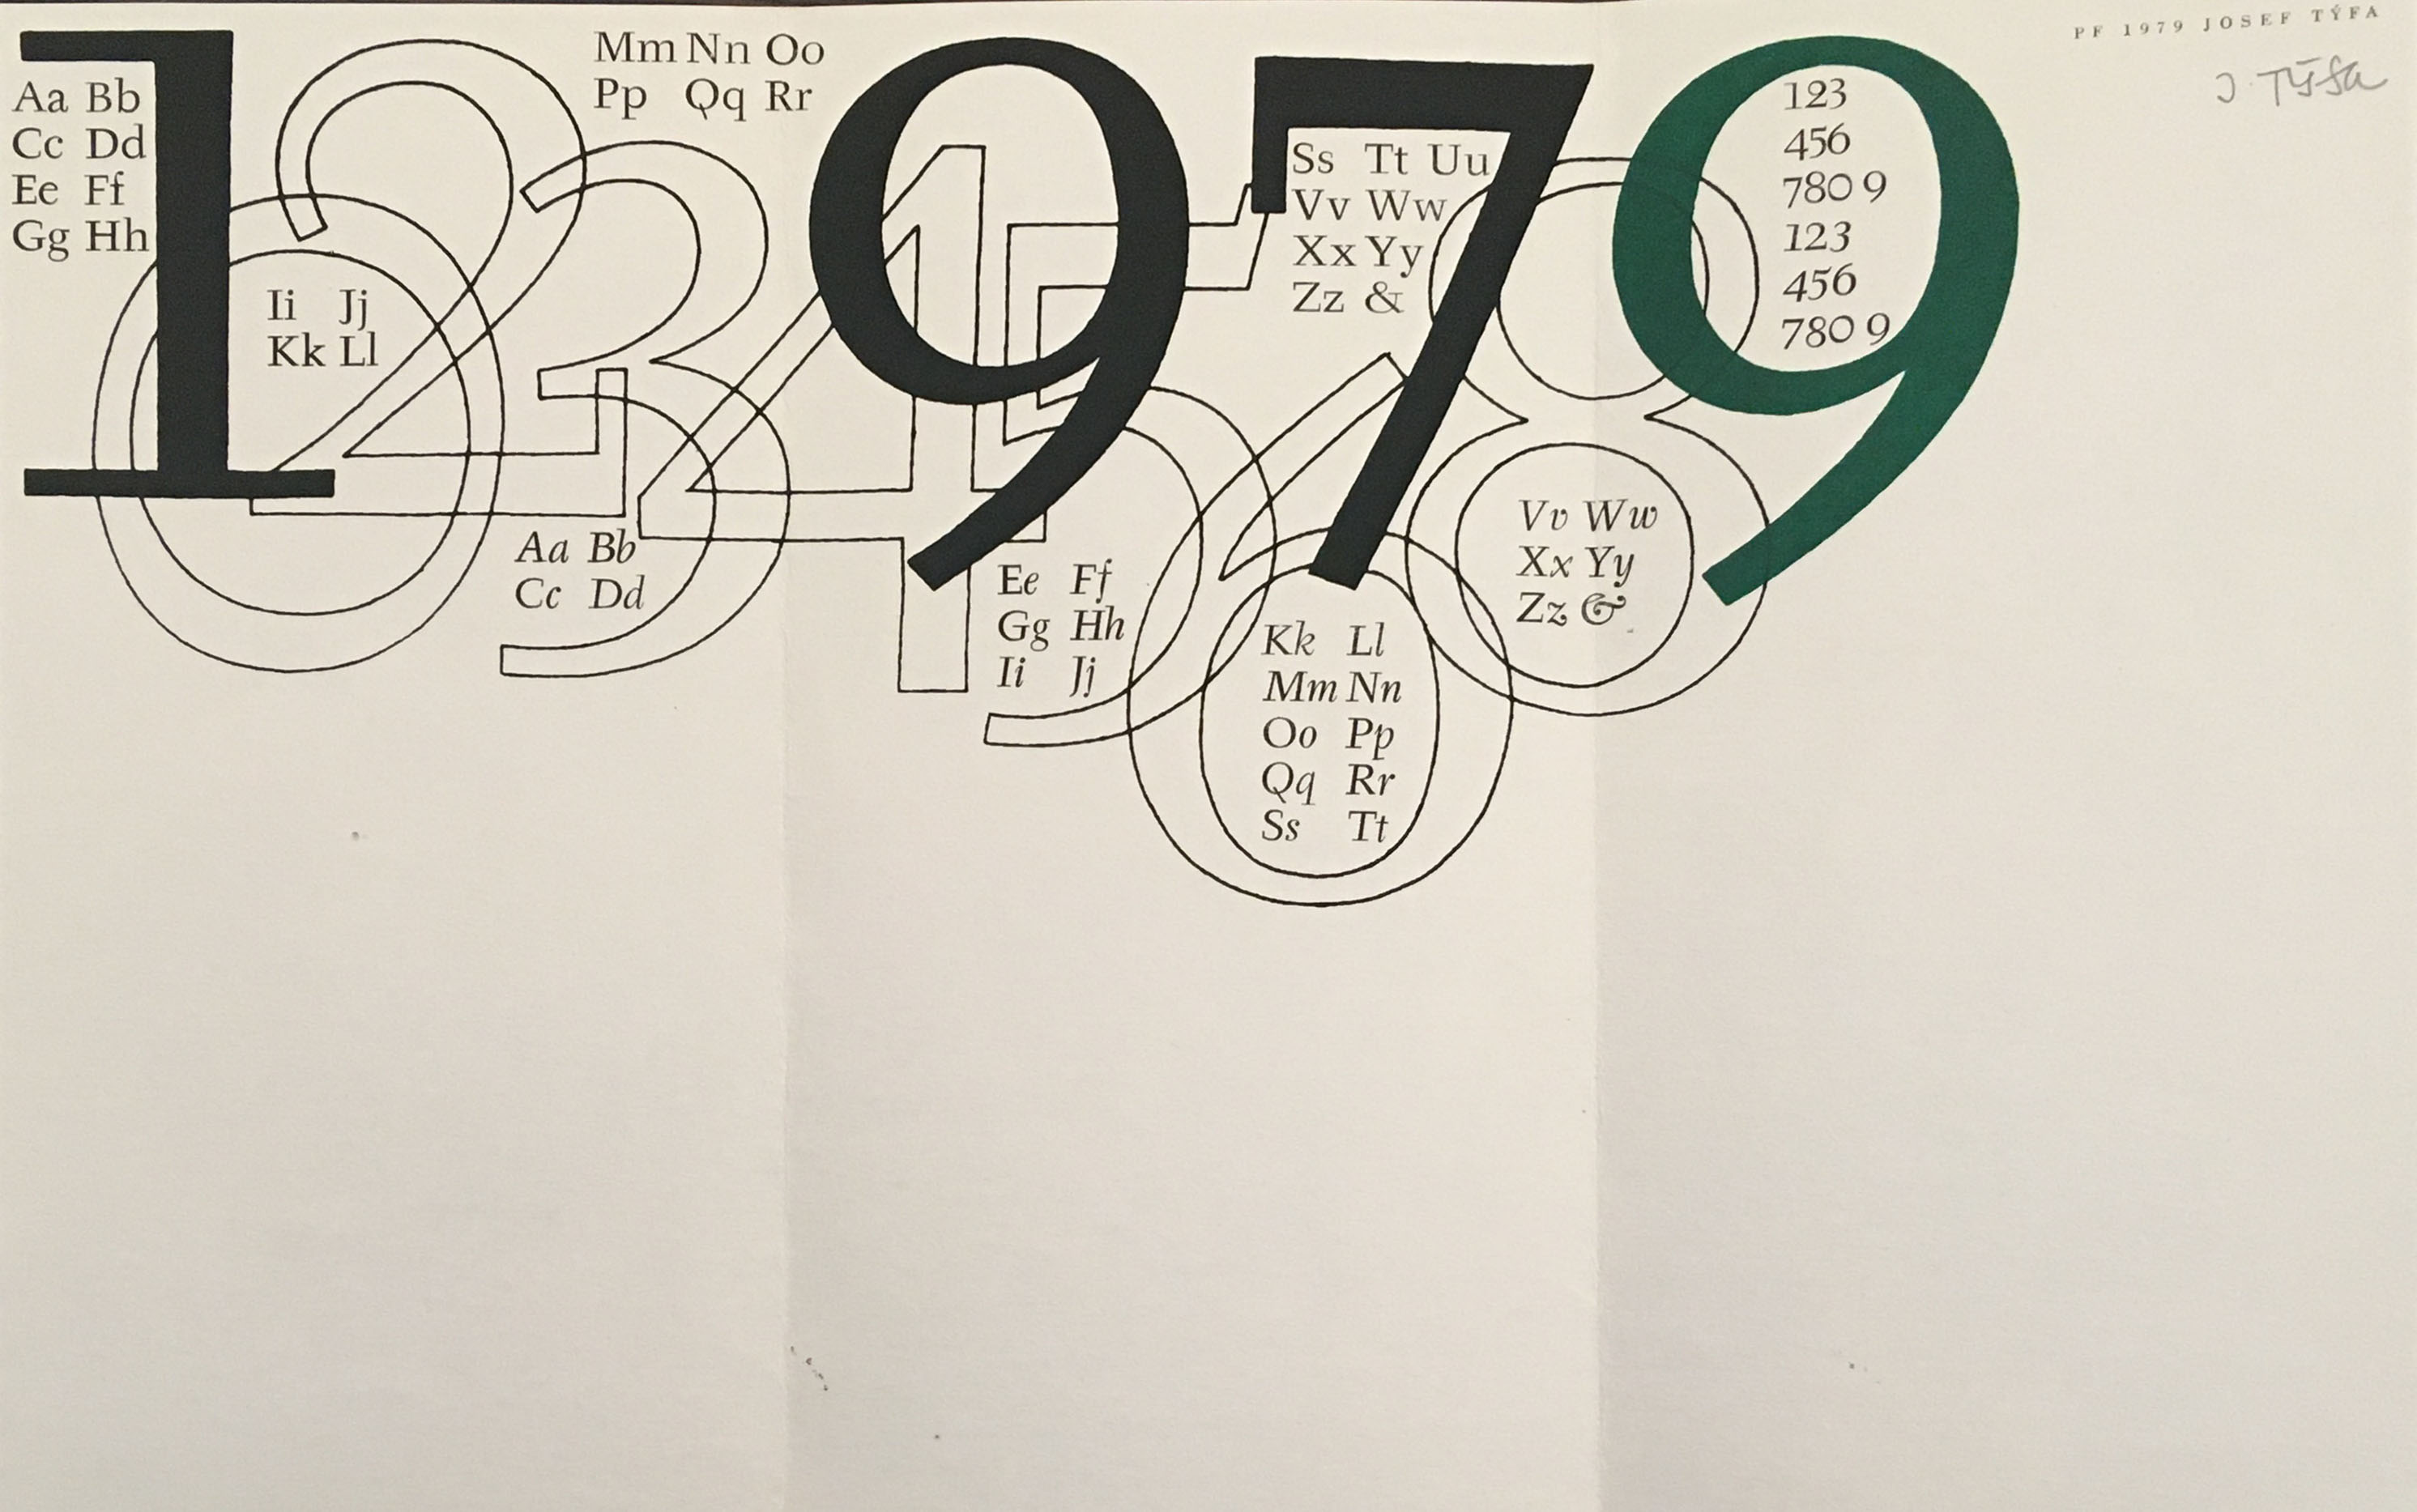 PF 1979 JOSEF TÝFA
J. Týfa
1979
Aa Bb
Cc Dd
Ee Ff
Gg Hh
Ii Jj
Kk Ll
Mm Nn Oo
Pp Qq Rr
Ss Tt Uu
Vv Ww
Xx Yy
Zz &
Aa Bb
Cc Dd
Ee Ff
Gg Hh
Ii Jj
Kk Ll
Mm Nn
Oo Pp
Qq Rr
Ss Tt
Vv Ww
Xx Yy
Zz &
123
456
780 9
123
456
780 9
0 2 3 4 5 6 8